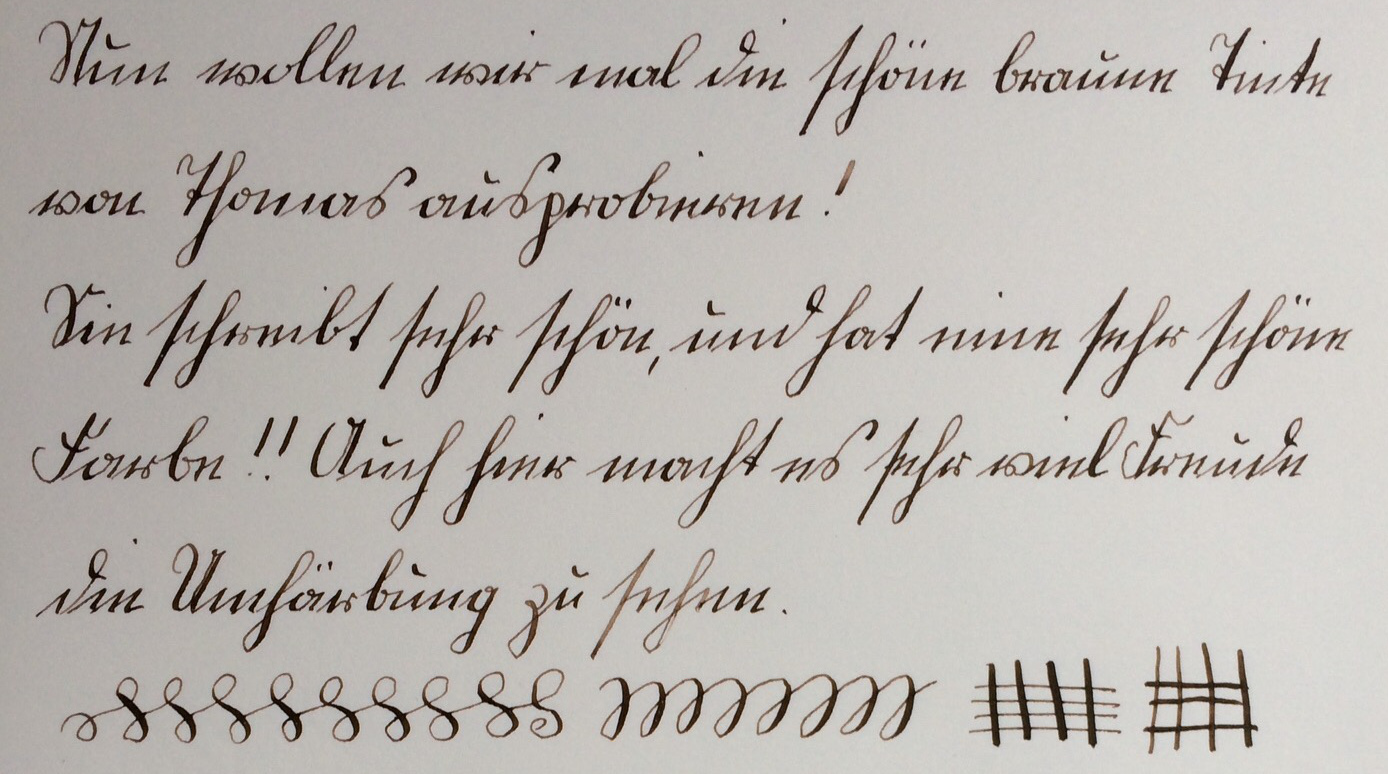 Nun wollen wir mal die schöne braune Tinte
von Thomas ausprobieren!
Sie schreibt sehr schön, und hat eine sehr schöne
Farbe!! Auch hier macht es sehr viel Freude
die Umfärbung zu sehen.